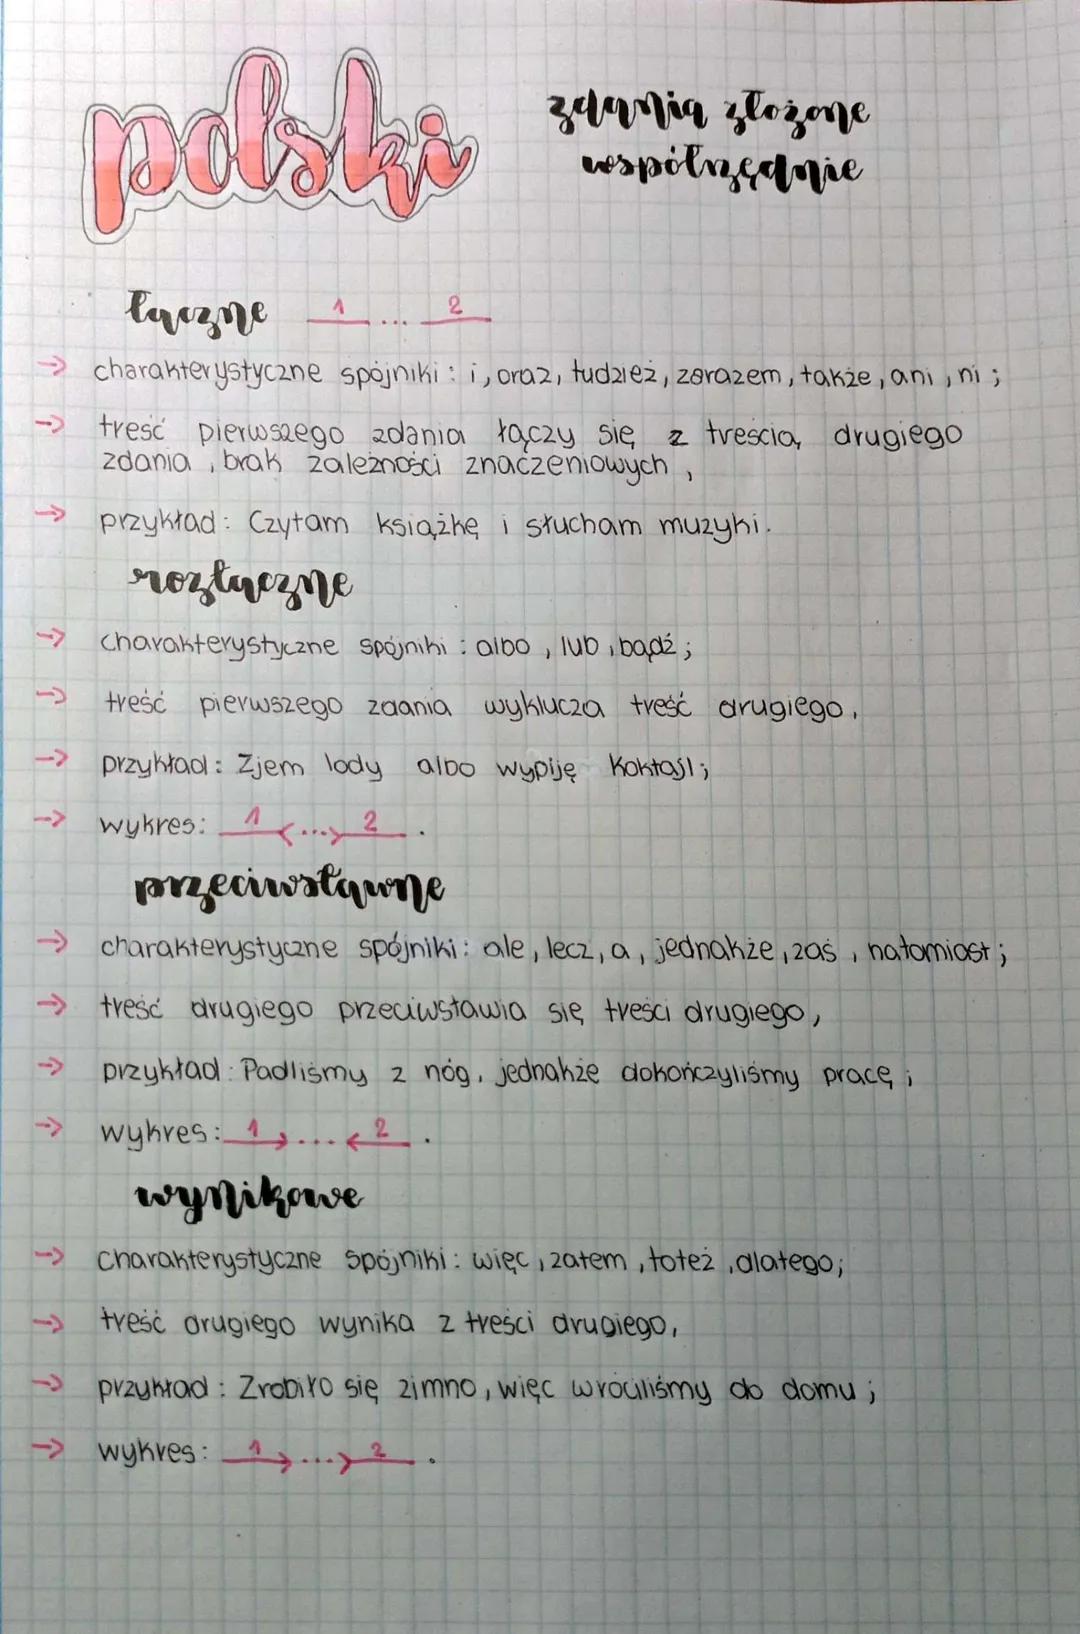 polski
zdania złożone
współrzędnie
łączne 1 ... 2
-> charakterystyczne spójniki: i, oraz, tudzież, zarazem, także, ani, ni;
-> treść pierwszego zdania łączy się z treścią drugiego
zdania, brak zależności znaczeniowych,
-> przykład: Czytam książkę i słucham muzyki.
rozłączne
-> charakterystyczne spójniki: albo, lub, bądź;
-> treść pierwszego zdania wyklucza treść drugiego,
-> przykład: Zjem lody albo wypiję koktajl;
-> wykres: 1 <...> 2.
przeciwstawne
-> charakterystyczne spójniki: ale, lecz, a, jednakże, zaś, natomiast;
-> treść drugiego przeciwstawia się treści drugiego,
-> przykład: Padliśmy z nóg, jednakże dokończyliśmy pracę;
-> wykres: 1 >...< 2.
wynikowe
-> charakterystyczne spójniki: więc, zatem, toteż, dlatego;
-> treść drugiego wynika z treści drugiego,
-> przykład: Zrobiło się zimno, więc wróciliśmy do domu;
-> wykres: 1 >...> 2.